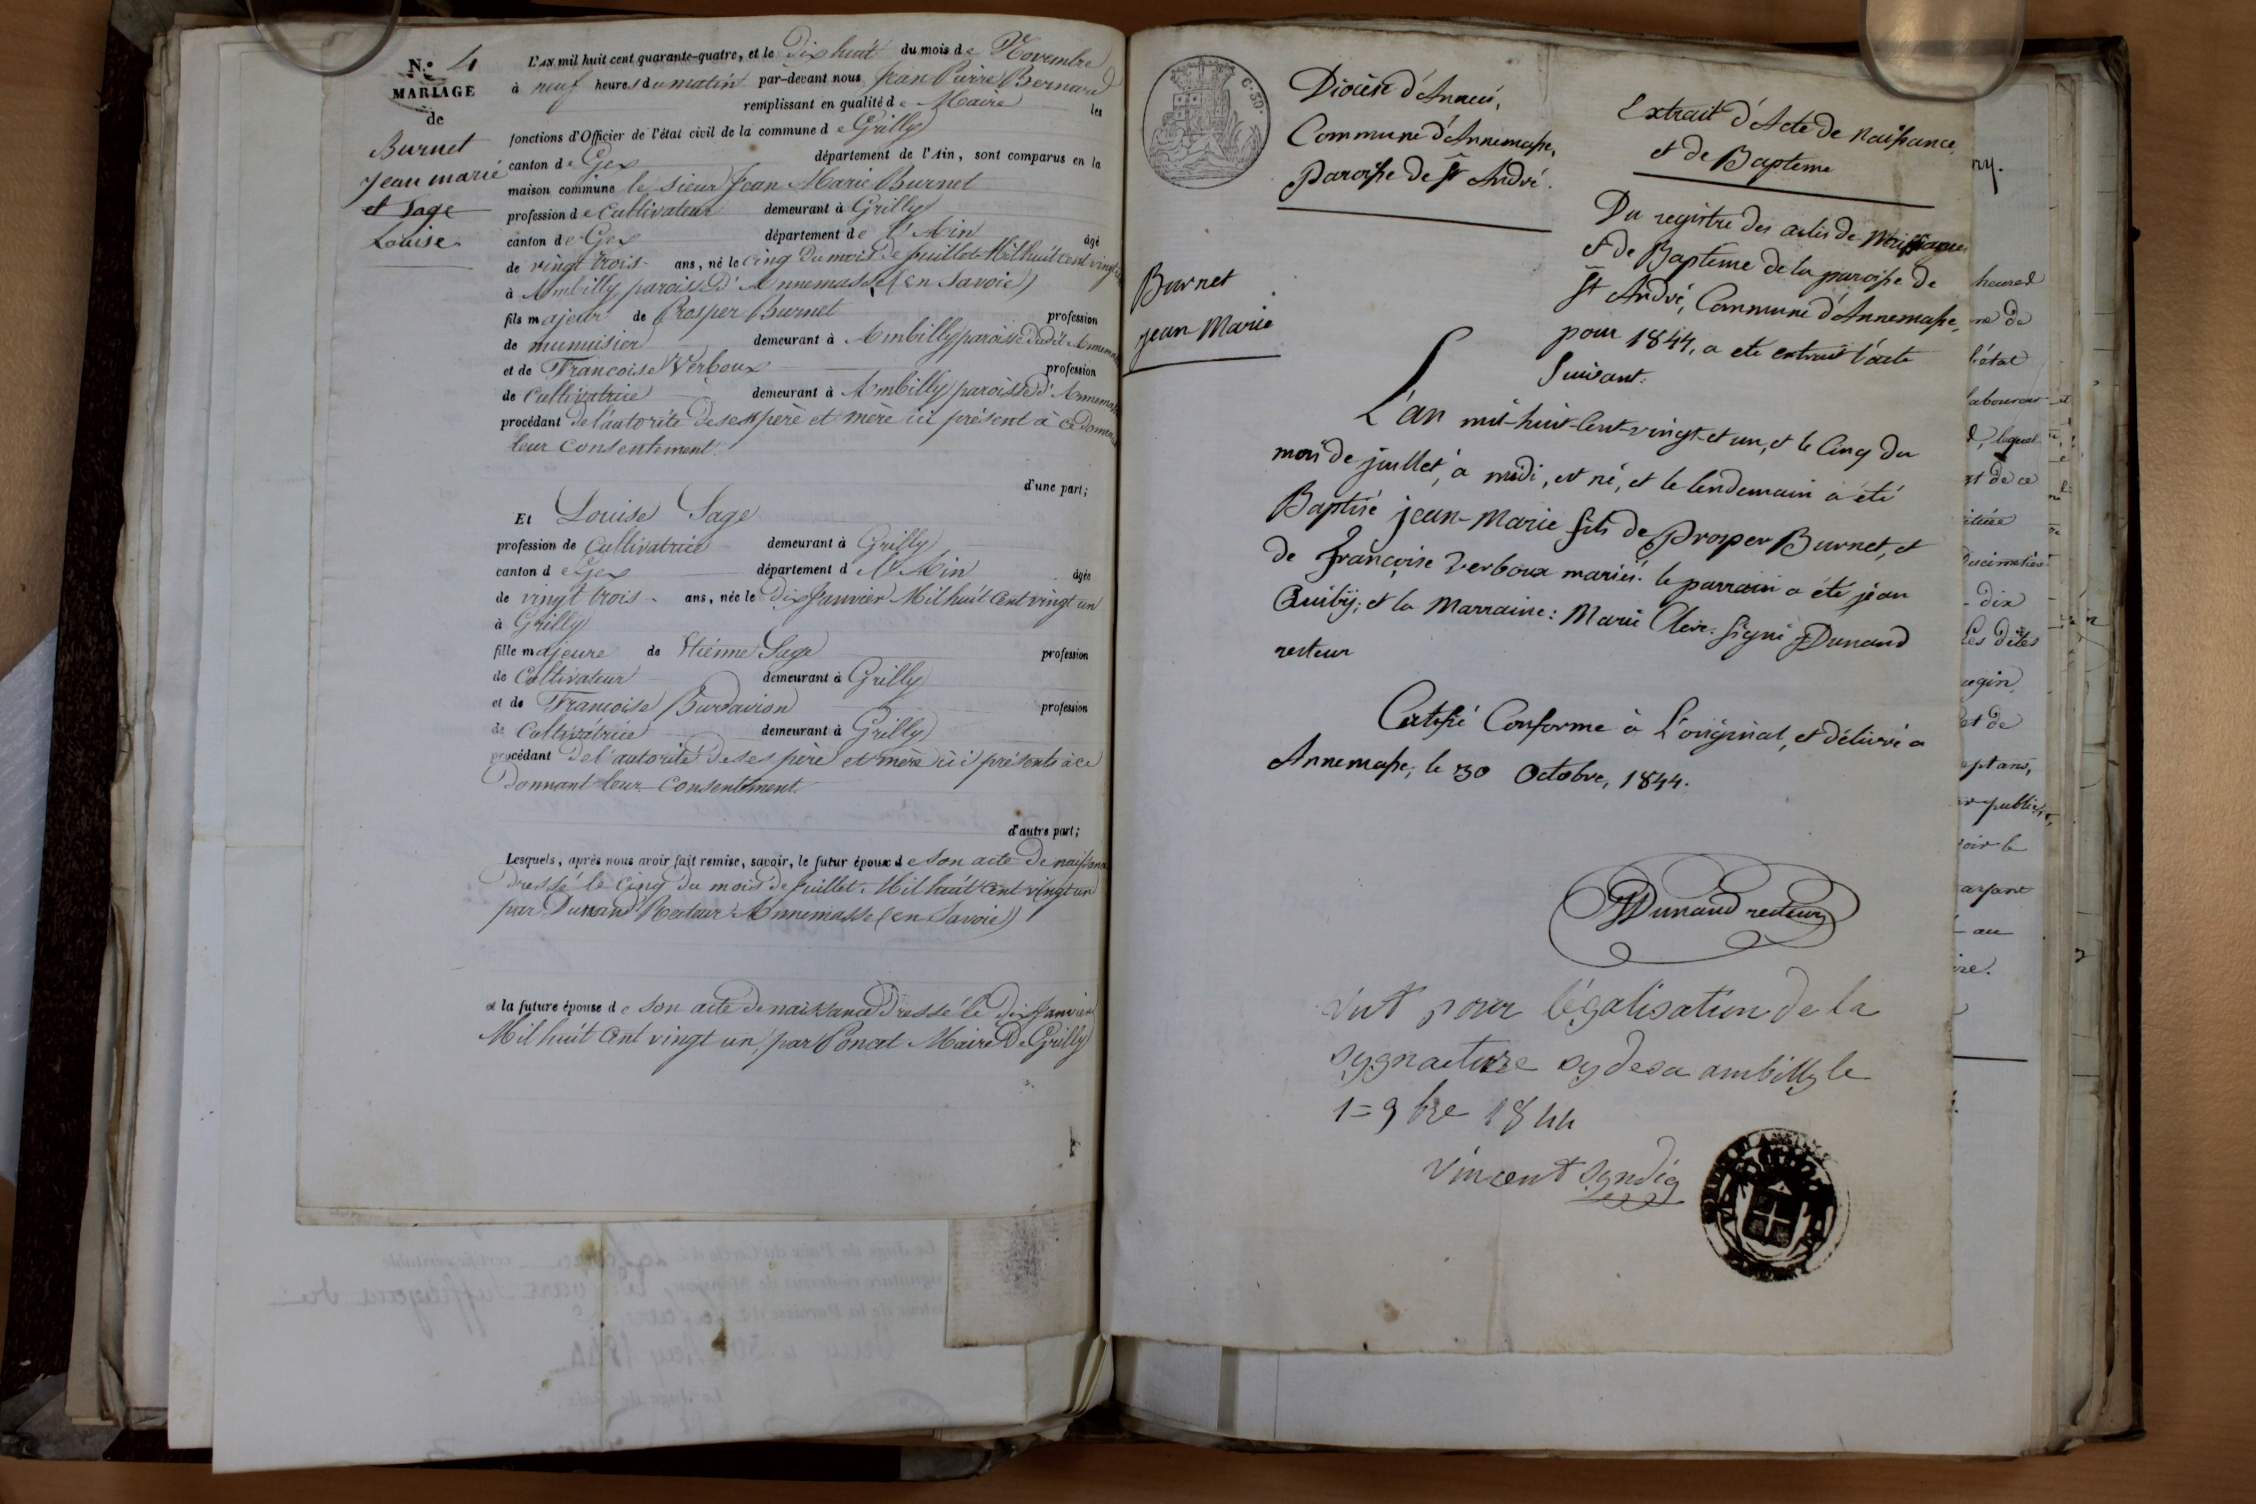 N.o 4
MARIAGE
de
Burnet
Jean marie
et Sage
Louise
L'AN mil huit cent quarante-quatre, et le Dix huit du mois de Novembre
à neuf heures du matin par-devant nous Jean Pierre Bernard
remplissant en qualité de Maire les
fonctions d'Officier de l'état civil de la commune de Grilly
canton de Gex département de l'Ain, sont comparus en la
maison commune le sieur Jean Marie Burnet
profession de Cultivateur demeurant à Grilly
canton de Gex département de l'Ain âgé
de vingt trois ans, né le cinq du mois de juillet Mil huit cent vingt
à Ambilly paroisse d'Annemasse (en Savoie)
fils majeur de Prosper Burnet profession
de menuisier demeurant à Ambilly paroisse dudit
et de Francoise Verboux profession
de Cultivatrice demeurant à Ambilly paroisse d'
procédant de l'autorité de ses père et mère ici présent à ce
leur consentement.
d'une part;
Et Louise Sage
profession de Cultivatrice demeurant à Grilly
canton de Gex département de l'Ain âgée
de vingt trois ans, née le Dix Janvier Mil huit cent vingt un
à Grilly
fille majeure de Etienne Sage profession
de Cultivateur demeurant à Grilly
et de Francoise Burdavion profession
de Cultivatrice demeurant à Grilly
procédant de l'autorité de ses père et mère ici présents à ce
Donnant leur consentement.
d'autre part;
Lesquels, après nous avoir fait remise, savoir, le futur époux de son acte de naissance
Dressé le cinq du mois de Juillet Mil huit cent vingt un
par Dunand Recteur Annemasse (en Savoie)
et la future épouse de son acte de naissance Dressé le dix Janvier
Mil huit cent vingt un, par Poncet Maire De Grilly
C. 30.
Diocèse d'Anneci,
Commune d'Annemasse,
Paroisse de St André.
Extrait d'Acte de Naissance
et de Baptême
Burnet
jean Marie
Du registre des actes de Naissance
et de Baptême de la paroisse de
St André, Commune d'Annemasse,
pour 1844, a été extrait l'acte
Suivant.
L'an mil-huit-Cent-vingt-et un, et le Cinq du
mois de juillet, à midi, est né, et le lendemain a été
Baptisé jean-Marie fils de Prosper Burnet, et
de françoise Verboux mariés. le parrain a été jean
et la Marraine: Marie signé Dunand
recteur
Certifié Conforme à L'original, et délivré a
Annemasse, le 30 Octobre, 1844.
Dunand recteur
Vut pour légalisation de la
sygnacture sy desu ambilly le
1=9 bre 1844
Vincent syndiq